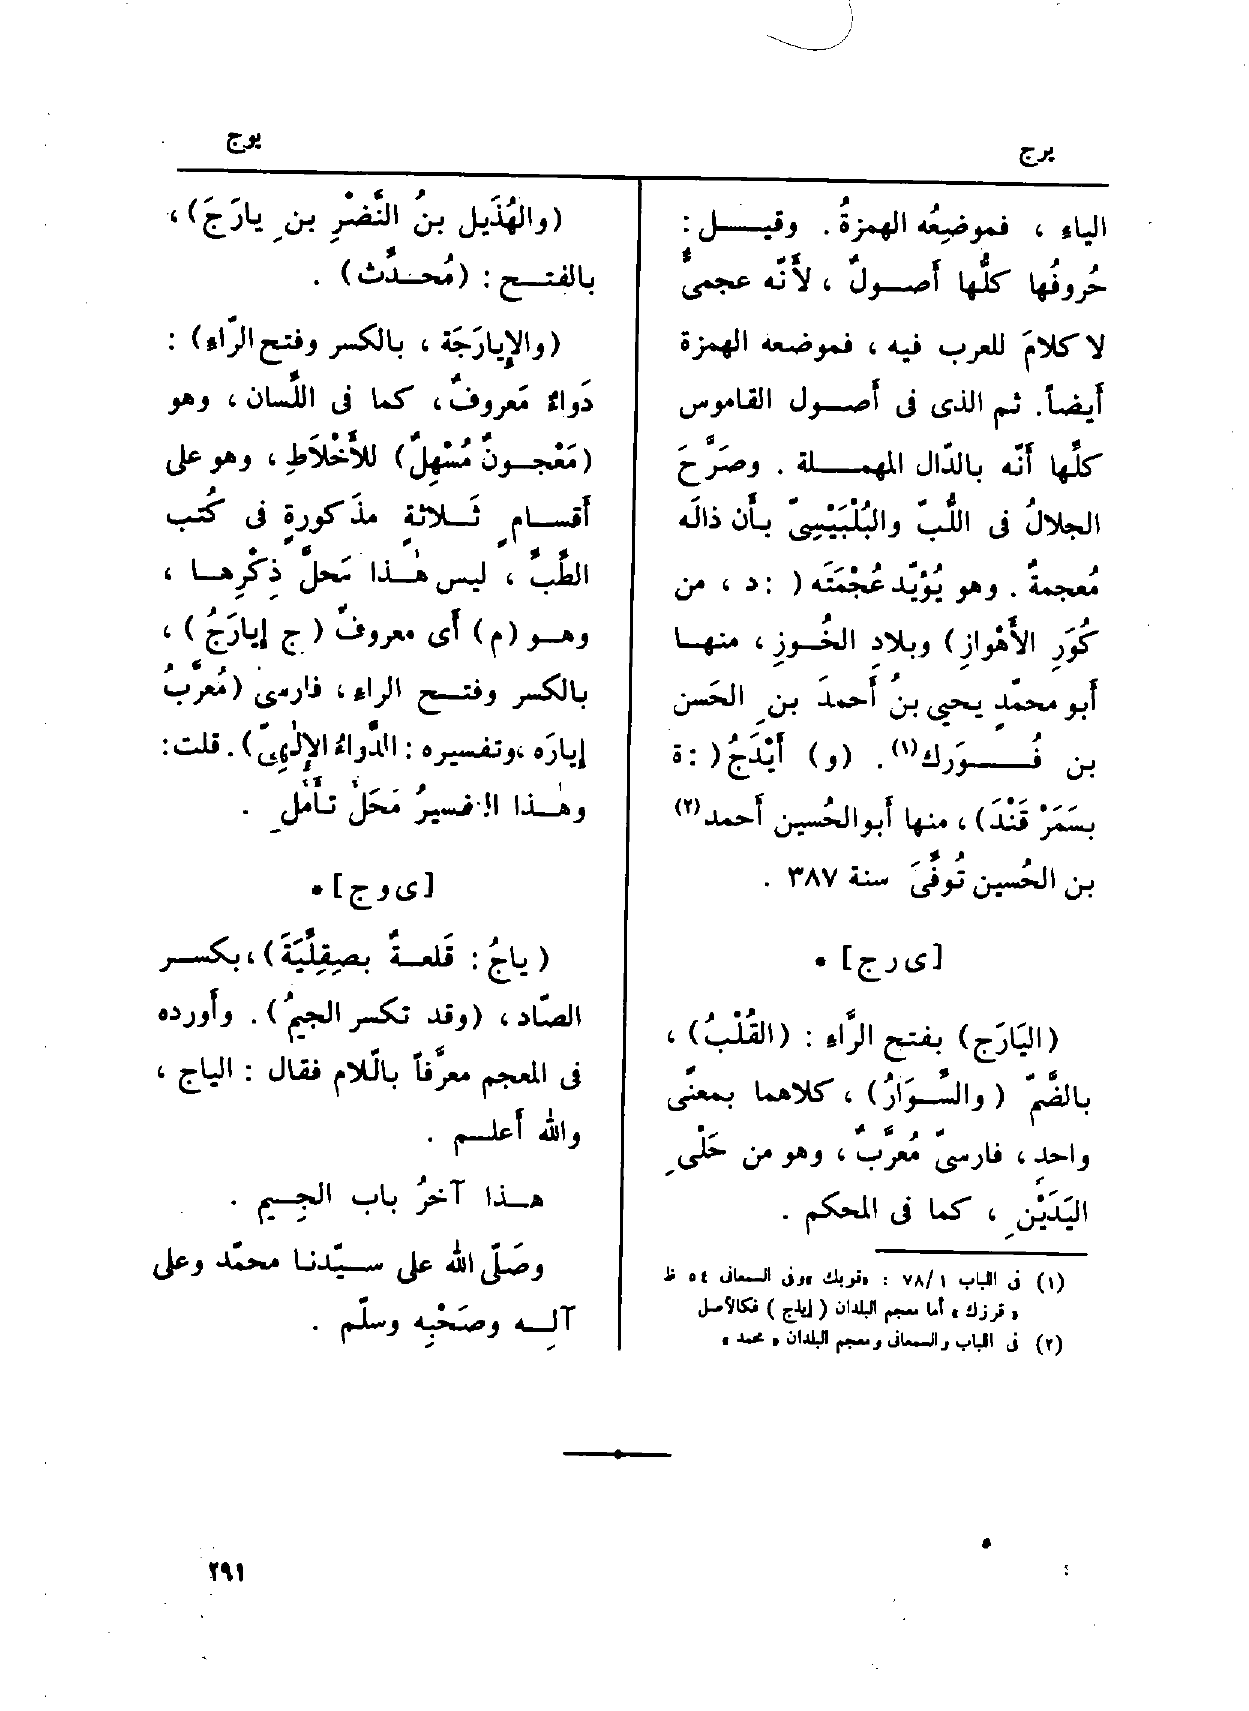 يرج
يوج
الياء ، فموضِعُه الهمزةُ . وقيل :
حُروفُها كلُّها أُصولٌ ، لأَنّه عجمىٌّ
لا كلامَ للعرب فيه ، فموضعه الهمزة
أَيضاً. ثم الذى فى أُصول القاموس
كلِّها أَنّه بالدّال المهملة . وصَرَّحَ
الجلالُ فى اللّبّ والبُلْبَيْسِىّ بأَن ذالَه
مُعجمةٌ . وهو يُؤيّد عُجْمَتَه ( :د ، من
كُوَرِ الأَهْوازِ ) وبلادِ الخُوزِ ، منها
أَبو محمّدٍ يحيى بنُ أَحمدَ بنِ الحَسن
بن فُورَك(١) . (و) أَيْذَجُ( :ة
بسَمَرْ قَنْدَ) ، منها أَبو الحُسين أَحمد(٢)
بن الحُسين تُوفِّىَ سنة ٣٨٧ .
[ى ر ج] *
(اليَارَج) بفتح الرَّاء : (القُلْبُ) ،
بالضَّمّ ( والسِّوَارُ ) ، كلاهما بمعنًى
واحدٍ ، فارسىّ مُعرَّبٌ ، وهو من حَلْىِ
اليَدَيْنِ ، كما فى المحكم .
(١) فى اللباب ١/ ٧٨ : «قوبك »وفى السمعانى ٥٤ ظ
« قرزك » أما معجم البلدان ( إيذج ) فكالأصل
(٢) فى اللباب والسمعانى ومعجم البلدان « محمد »
(والهُذَيل بنُ النَّضْرِ بنِ يارَجَ) ،
بالفتح : (مُحدِّث) .
(والإِيارَجَة ، بالكسر وفتح الرّاءِ) :
دَواءٌ مَعروفٌ، كما فى اللِّسان ، وهو
(مَعْجونٌ مُسْهِلٌ) للأَخْلَاطِ ، وهو على
أَقسامٍ ثَلاثةٍ مذكورةٍ فى كُتب
الطِّبِّ ، ليس هٰذا مَحلَّ ذِكْرِها ،
وهو (م) أَى معروفٌ ( ج إِيارَجُ ) ،
بالكسر وفتح الراء ، فارسى (مُعرَّبُ
إِيارَه ،وتفسيره : الدَّواءُ الإِلٰهِىّ) . قلت:
وهٰذا التفسيرُ مَحَلُّ تأَمُّلٍ .
[ى و ج] *
( ياجُ : قَلعةٌ بصِقِلِّيَةَ) ، بكسر
الصّاد ، (وقد تكسر الجيمُ) . وأَورده
فى المعجم معرَّفاً بالّلام فقال : الياج ،
والله أَعلم .
هذا آخرُ باب الجِيم .
وصَلّى الله على سيّدنا محمّد وعلى
آلِه وصَحْبِه وسلّم .
٢٩١